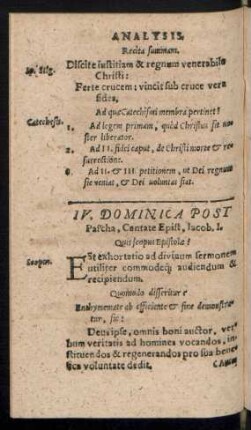 ANALYSIS.
Recita summam.
Discite iustitiam & regnum venerabile
Christi:
Ferte crucem: vincit sub cruce vera
fides.
Ad quæ Catechismi membra pertinet?
Catechesis.
1. Ad legem primam, quòd Christus sit noster liberator.
2. Ad II. fidei caput, de Christi morte & resurrectione.
3. Ad II. & III. petitionem, ut Dei regnum veniat, & Dei voluntas fiat.
IV. DOMINICA POST
Pascha, Cantate Epist. Iacob. I.
Quis scopus Epistolæ?
Scopus.
Est exhortatio ad divinum sermonem
utiliter commodeq; audiendum &
recipiendum.
Quomodo disseritur?
Enthymemate ab efficiente & fine demonstratur, sic:
Deus ipse, omnis boni auctor, verbum veritatis ad homines vocandos, instituendos & regenerandos pro sua benefica voluntate dedit.